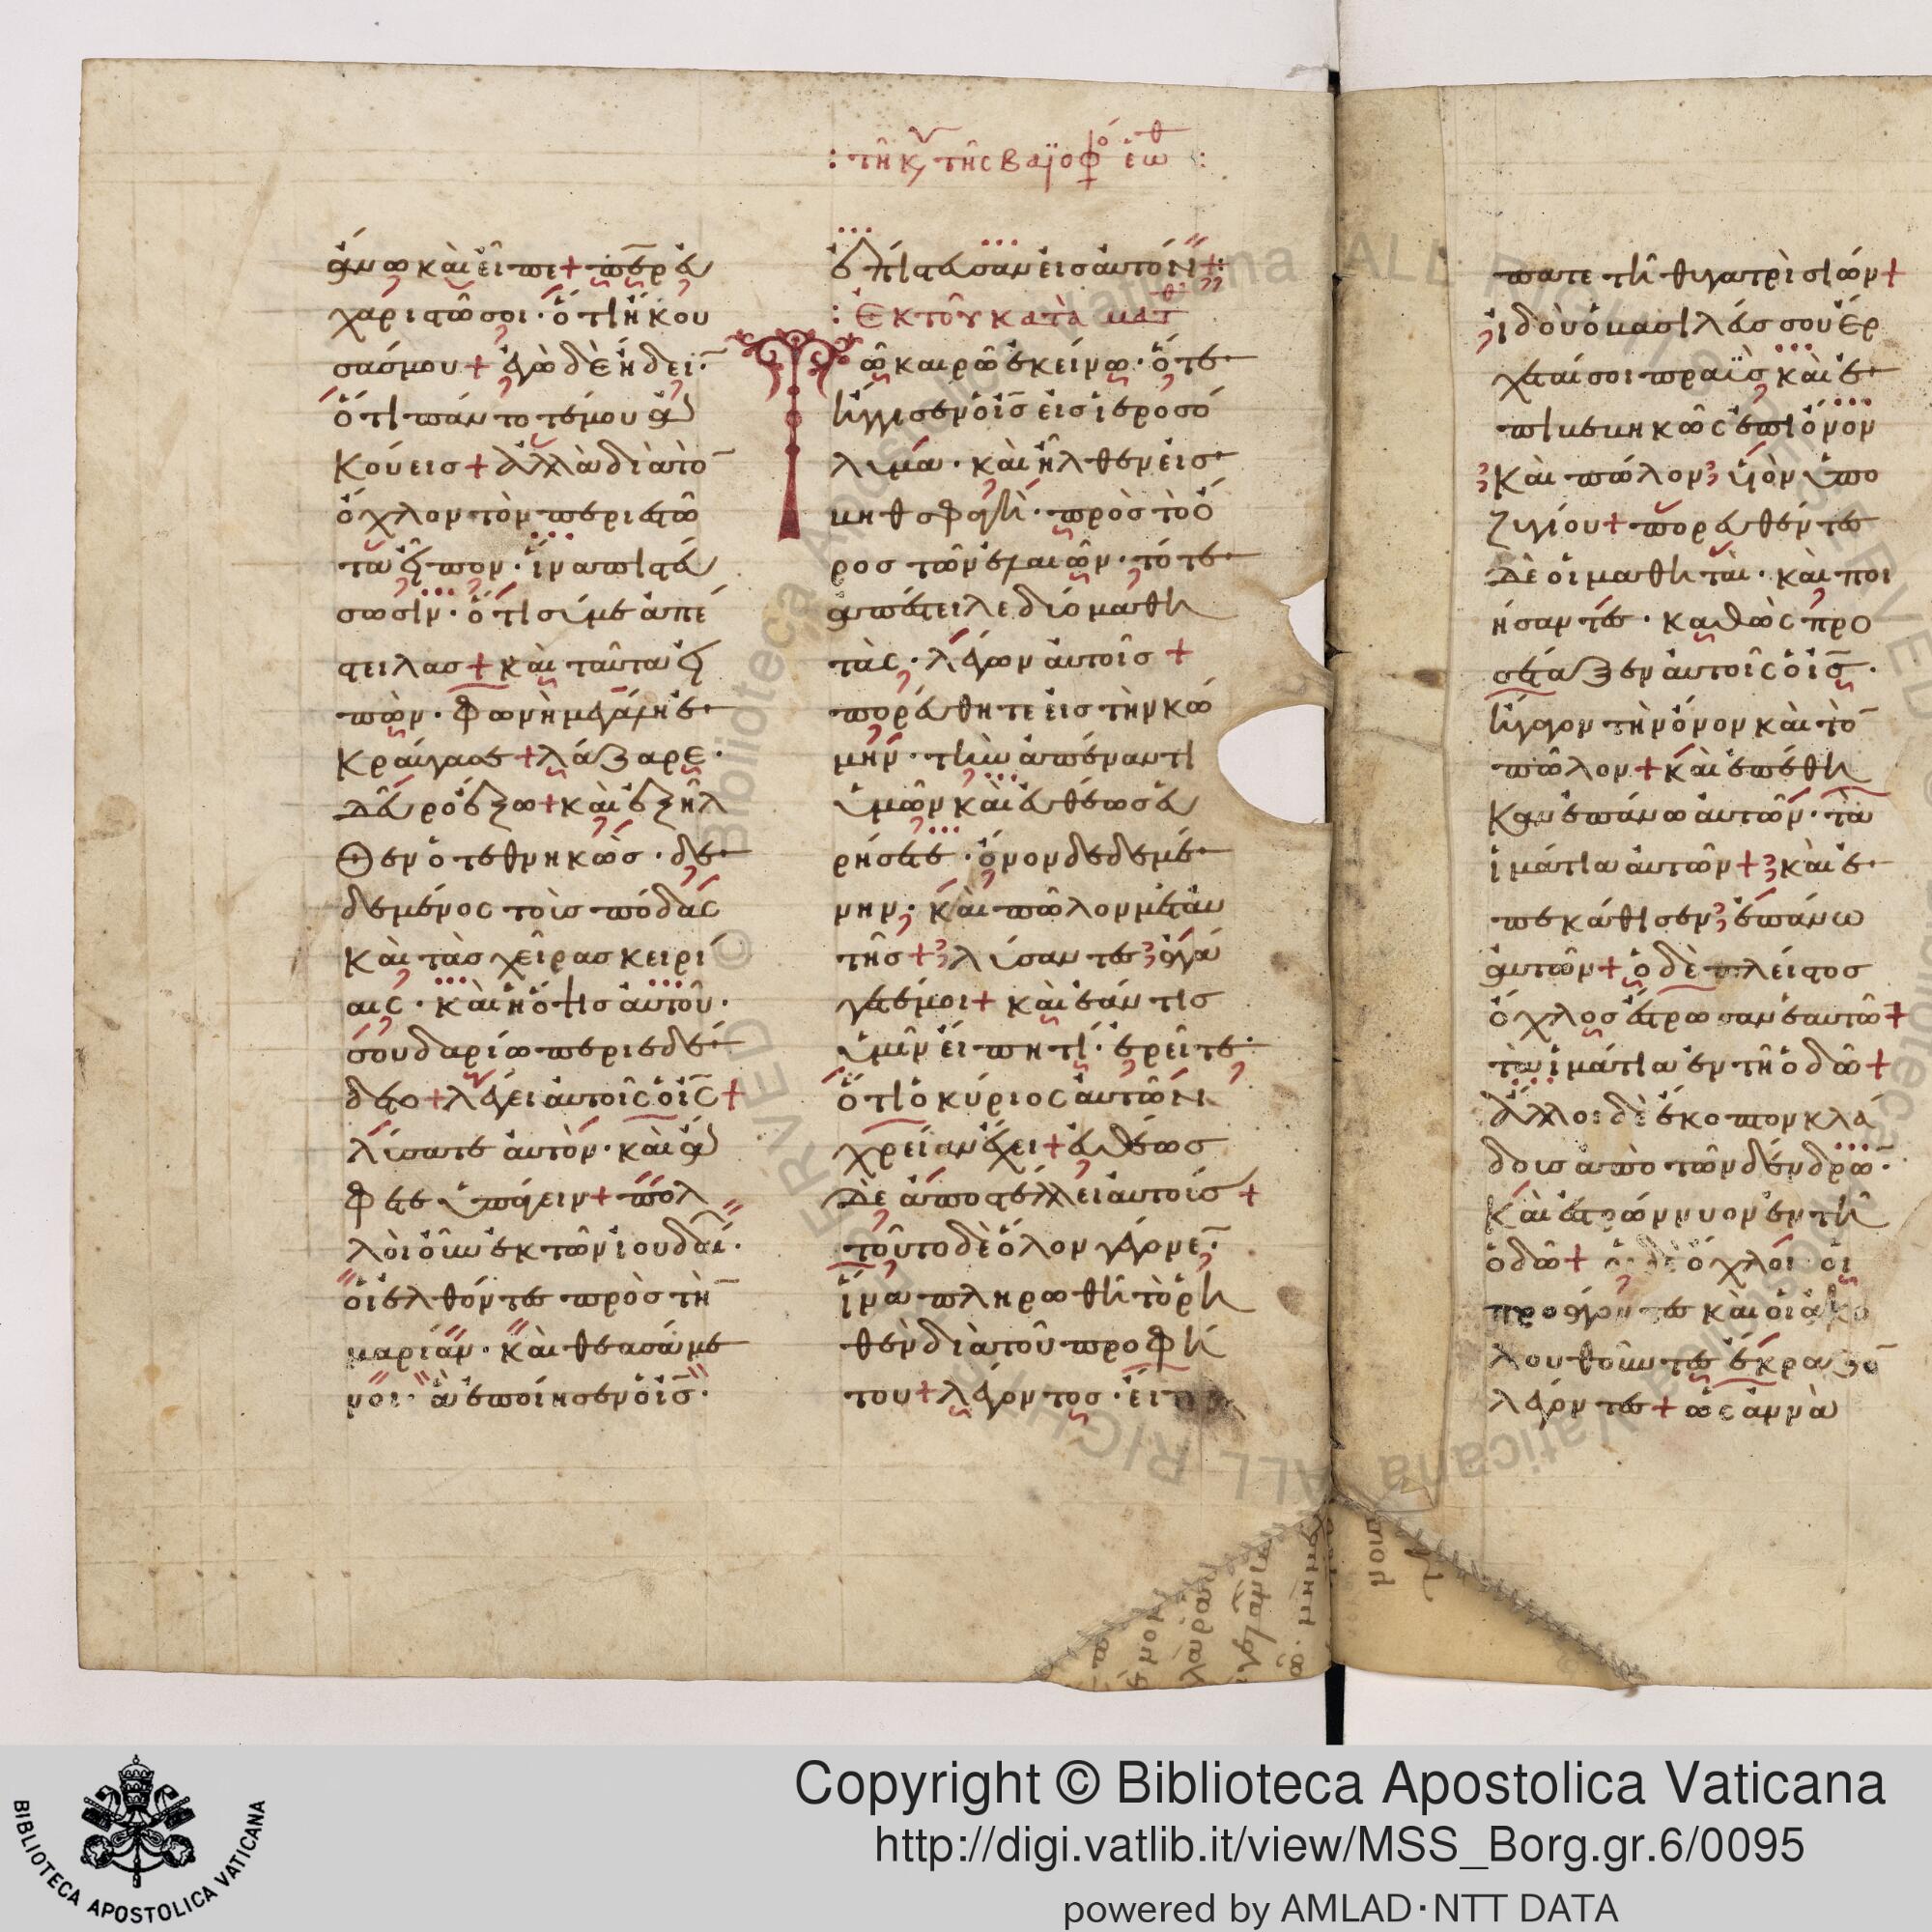 ἄνω καὶ εἶπε + περ εὐ
χαριστῶ σοι · ὅτι ἤκου
σάς μου + ἐγὼ δὲ ἤδει ̅·
ὅτι πάντοτέ μου ἀ
κούεις + ἀλλὰ διὰ τὸ ̅
ὄχλον τὸν περιεστῶ
τα εἶπον · ἵνα πιστεύ
σωσιν · ὅτι σύ με ἀπέ
στειλας + καὶ ταῦτα εἰ
πὼν · φωνῆ μεγάλη ἐ
κραύγασε + λάζαρε ·
δεῦρο ἔξω + καὶ ἐξῆλ
θεν ὁ τεθνηκὼς · δε
δεμένος τοὺς πόδας
καὶ τὰς χεῖρας κειρί
αις · καὶ ἡ ὄψις αὐτοῦ ·
σουδαρίω περιεδέ
δετο + λέγει αὐτοῖς ὁ ις +
λύσατε αὐτὸν · καὶ ἄ
φετε ὑπάγειν + πολ
λοὶ οὖν ἐκ τῶν ἰουδαί ·
οἱ ἐλθόντες πρὸς τὴ ̅
μαρίαν · καὶ θεασάμε
νοι · ἃ ἐποίησεν ὁ ις ·
: τῆ κυ τῆς βαϊοφό εἰς :
ἐπίστευσαν εἰς αὐτόν + :
: Ἐκ τοῦ κατὰ ματθ
Τῶ καιρῶ ἐκείνω · ὅτε
ἤγγισεν ὁ ις εἰς ἱεροσό
λυμα · καὶ ἦλθεν εἰς
βηθσφαγὴ · πρὸς τὸ ὄ
ρος τῶν ἐλαιῶν · τότε
ἀπέστειλε δύο μαθη
τὰς · λέγων αὐτοῖς +
πορεύθητε εἰς τὴν κώ
μην · τὴν ἀπέναντι
ὑμῶν καὶ εὐθέως εὑ
ρήσετε · ὄνον δεδεμέ
νην · καὶ πῶλον μετ αὐ
τῆς + λύσαντες ἀγά
γετέ μοι + καὶ ἐάν τις
ὑμῖν εἴπη τι · ἐρεῖτε ·
ὅτι ὁ κύριος αὐτῶν
χρείαν ἔχει + εὐθέως
δὲ ἀποστέλλει αὐτούς +
τοῦτο δὲ ὅλον γέγονε ·
ἵνα πληρωθῆ τὸ ῥη
θὲν διὰ τοῦ προφή
του + λέγοντος ·
πατε τῆ θυγατρὶ σιών +
ἰδοὺ ὁ βασιλεύς σου ἔρ
χεταί σοι πραῢς καὶ ἐ
πιβεβηκῶς ἐπὶ ὄνον
καὶ πῶλον υἱὸν ὑπο
ζυγίου + πορευθέντες
δὲ οἱ μαθηταὶ · καὶ ποι
ήσαντες · καθὼς προ
σέταξεν αὐτοῖς ὁ ις ·
ἤγαγον τὴν ὄνον καὶ τὸ ̅
πῶλον + καὶ ἐπέθη
καν ἐπάνω αὐτῶν · τὰ
ἱμάτια αὐτῶν + καὶ ἐ
πεκάθισεν ἐπάνω
αὐτῶν + ὁ δὲ πλεῖστος
ὄχλος ἔστρωσαν ἑαυτῶ +
τὰ ἱμάτια ἐν τῆ ὁδῶ +
ἄλλοι δὲ ἔκοπτον κλά
δους ἀπὸ τῶν δένδρω ̅ ·
καὶ ἐστρώννυον ἐν τῆ
ὁδῶ + οἱ δὲ ὄχλοι οἱ
προάγοντες καὶ οἱ ἀκο
λουθοῦντες ἔκραζο ̅
λέγοντες + ὡσαννὰ
Copyright © Biblioteca Apostolica Vaticana
http://digi.vatlib.it/view/MSS_Borg.gr.6/0095
powered by AMLAD·NTT DATA
BIBLIOTECA APOSTOLICA VATICANA